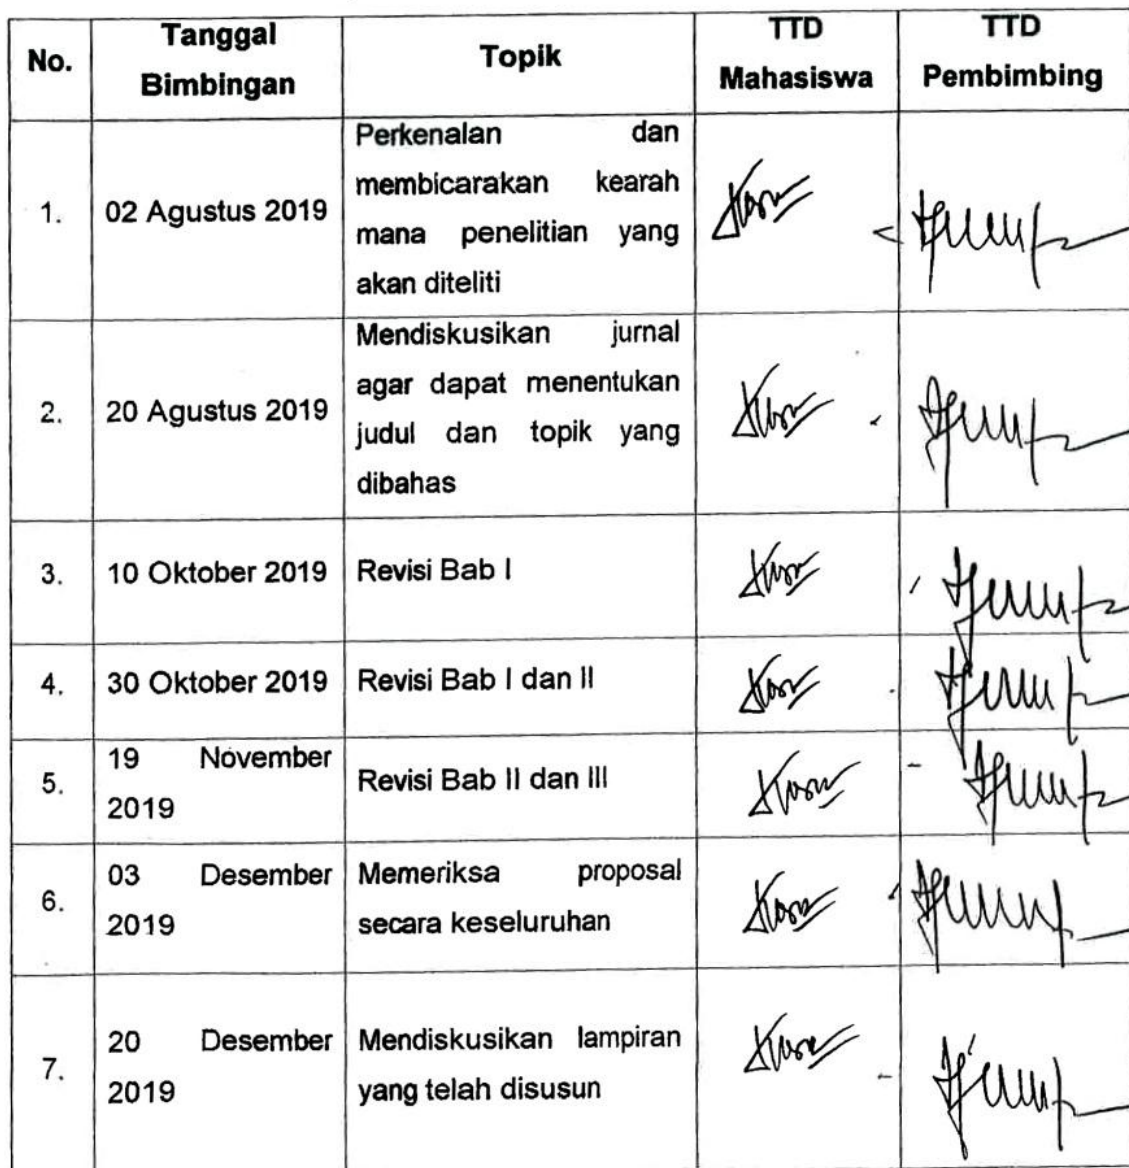 No.
Tanggal
Bimbingan
Topik
TTD
Mahasiswa
TTD
Pembimbing
1.
02 Agustus 2019
Perkenalan dan
membicarakan kearah
mana penelitian yang
akan diteliti
2.
20 Agustus 2019
Mendiskusikan jurnal
agar dapat menentukan
judul dan topik yang
dibahas
3.
10 Oktober 2019
Revisi Bab I
4.
30 Oktober 2019
Revisi Bab I dan II
5.
19 November
2019
Revisi Bab II dan III
6.
03 Desember
2019
Memeriksa proposal
secara keseluruhan
7.
20 Desember
2019
Mendiskusikan lampiran
yang telah disusun